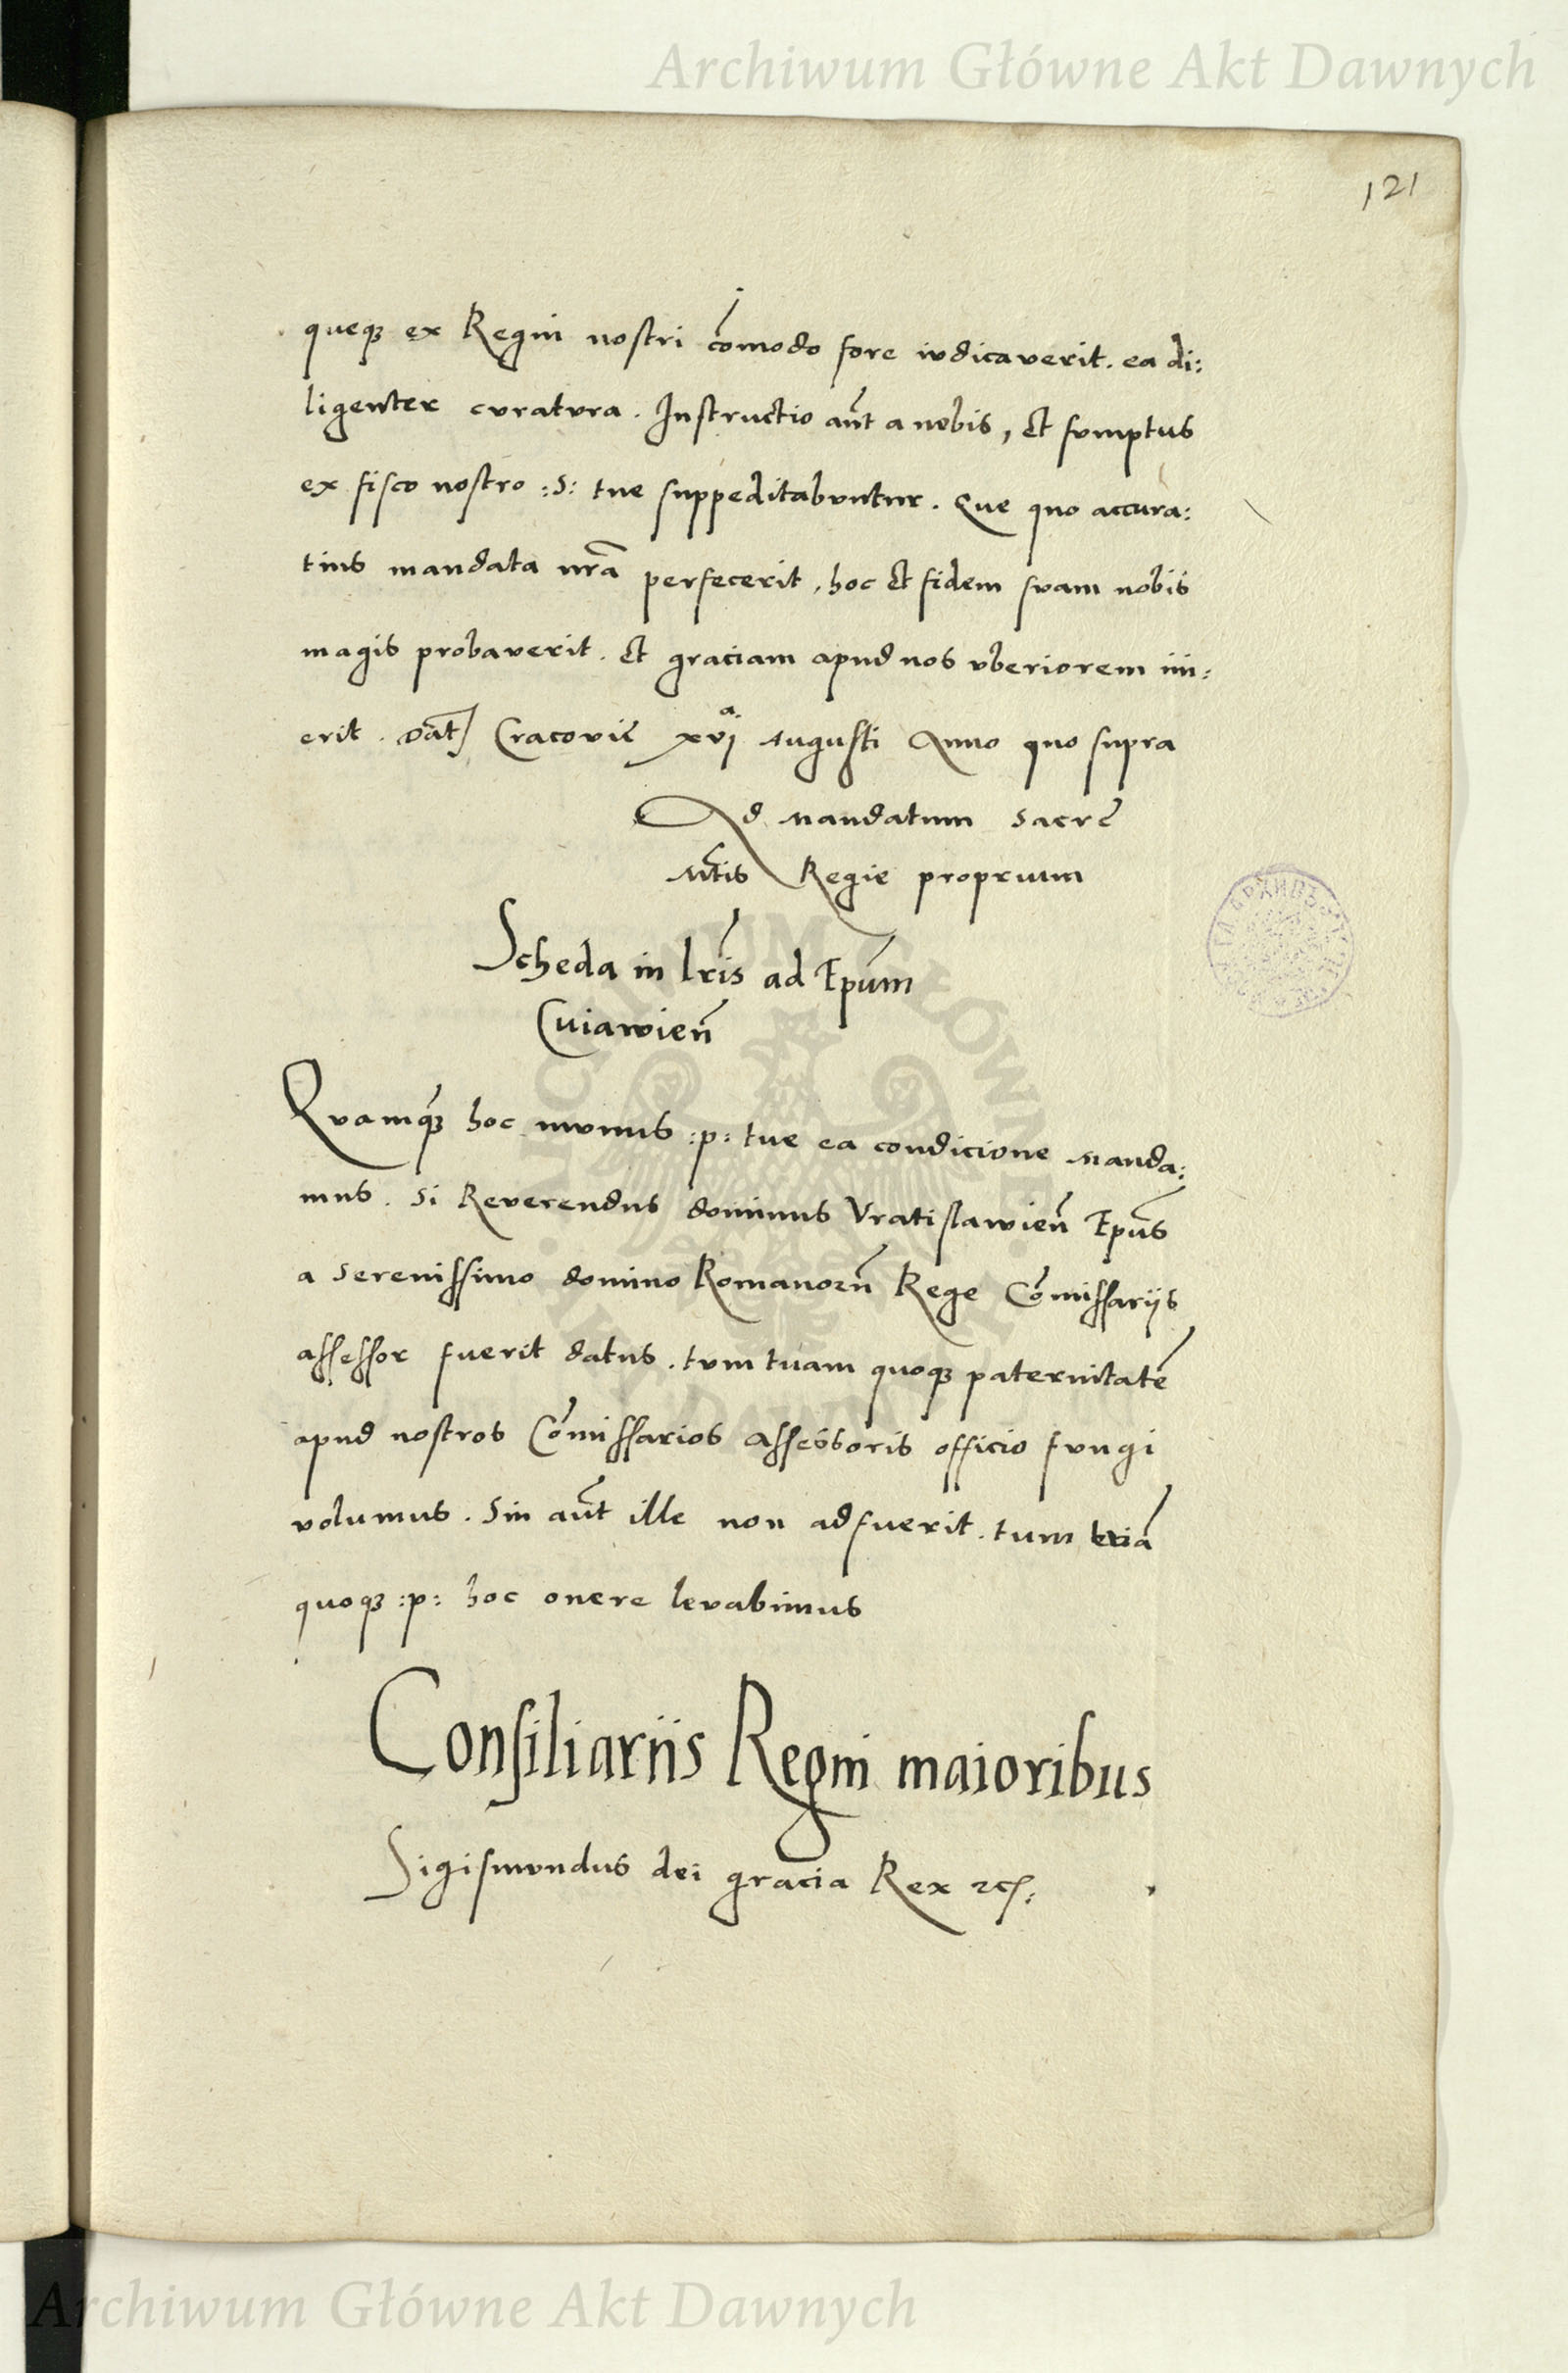 Archiwum Główne Akt Dawnych
121
queqꝫ ex Regni nostri cōmodo fore iudicaverit. ea di:
ligenter curatura. Instructio aūt a nobis, et sumptus
ex fisco nostro :S: tue suppeditabuntur. Que quo accura:
tius mandata nrā perfecerit, hoc et fidem suam nobis
magis probaverit. et graciam apud nos uberiorem ini:
erit. Dat̄ Cracovie xvjᵃ. Augusti Anno quo supra
Ad mandatum sacre
Mt̄is Regie proprium
Scheda in lr̄is ad Ep̄um
Cuiawien̄
Quamqꝫ hoc munus :p: tue ea condicione manda:
mus. Si Reverendus dominus Vratislawien̄ Ep̄us
a Serenissimo domino Romanorū Rege Cōmissariis
assessor fuerit datus. tum tuam quoqꝫ paternitatē
apud nostros Cōmissarios assessoris officio fungi
volumus. Sin aūt ille non adfuerit. tum
quoqꝫ :p: hoc onere levabimus
Consiliariis Regni maioribus
Sigismundus dei gracia Rex ꝛcꝭ:
Archiwum Główne Akt Dawnych